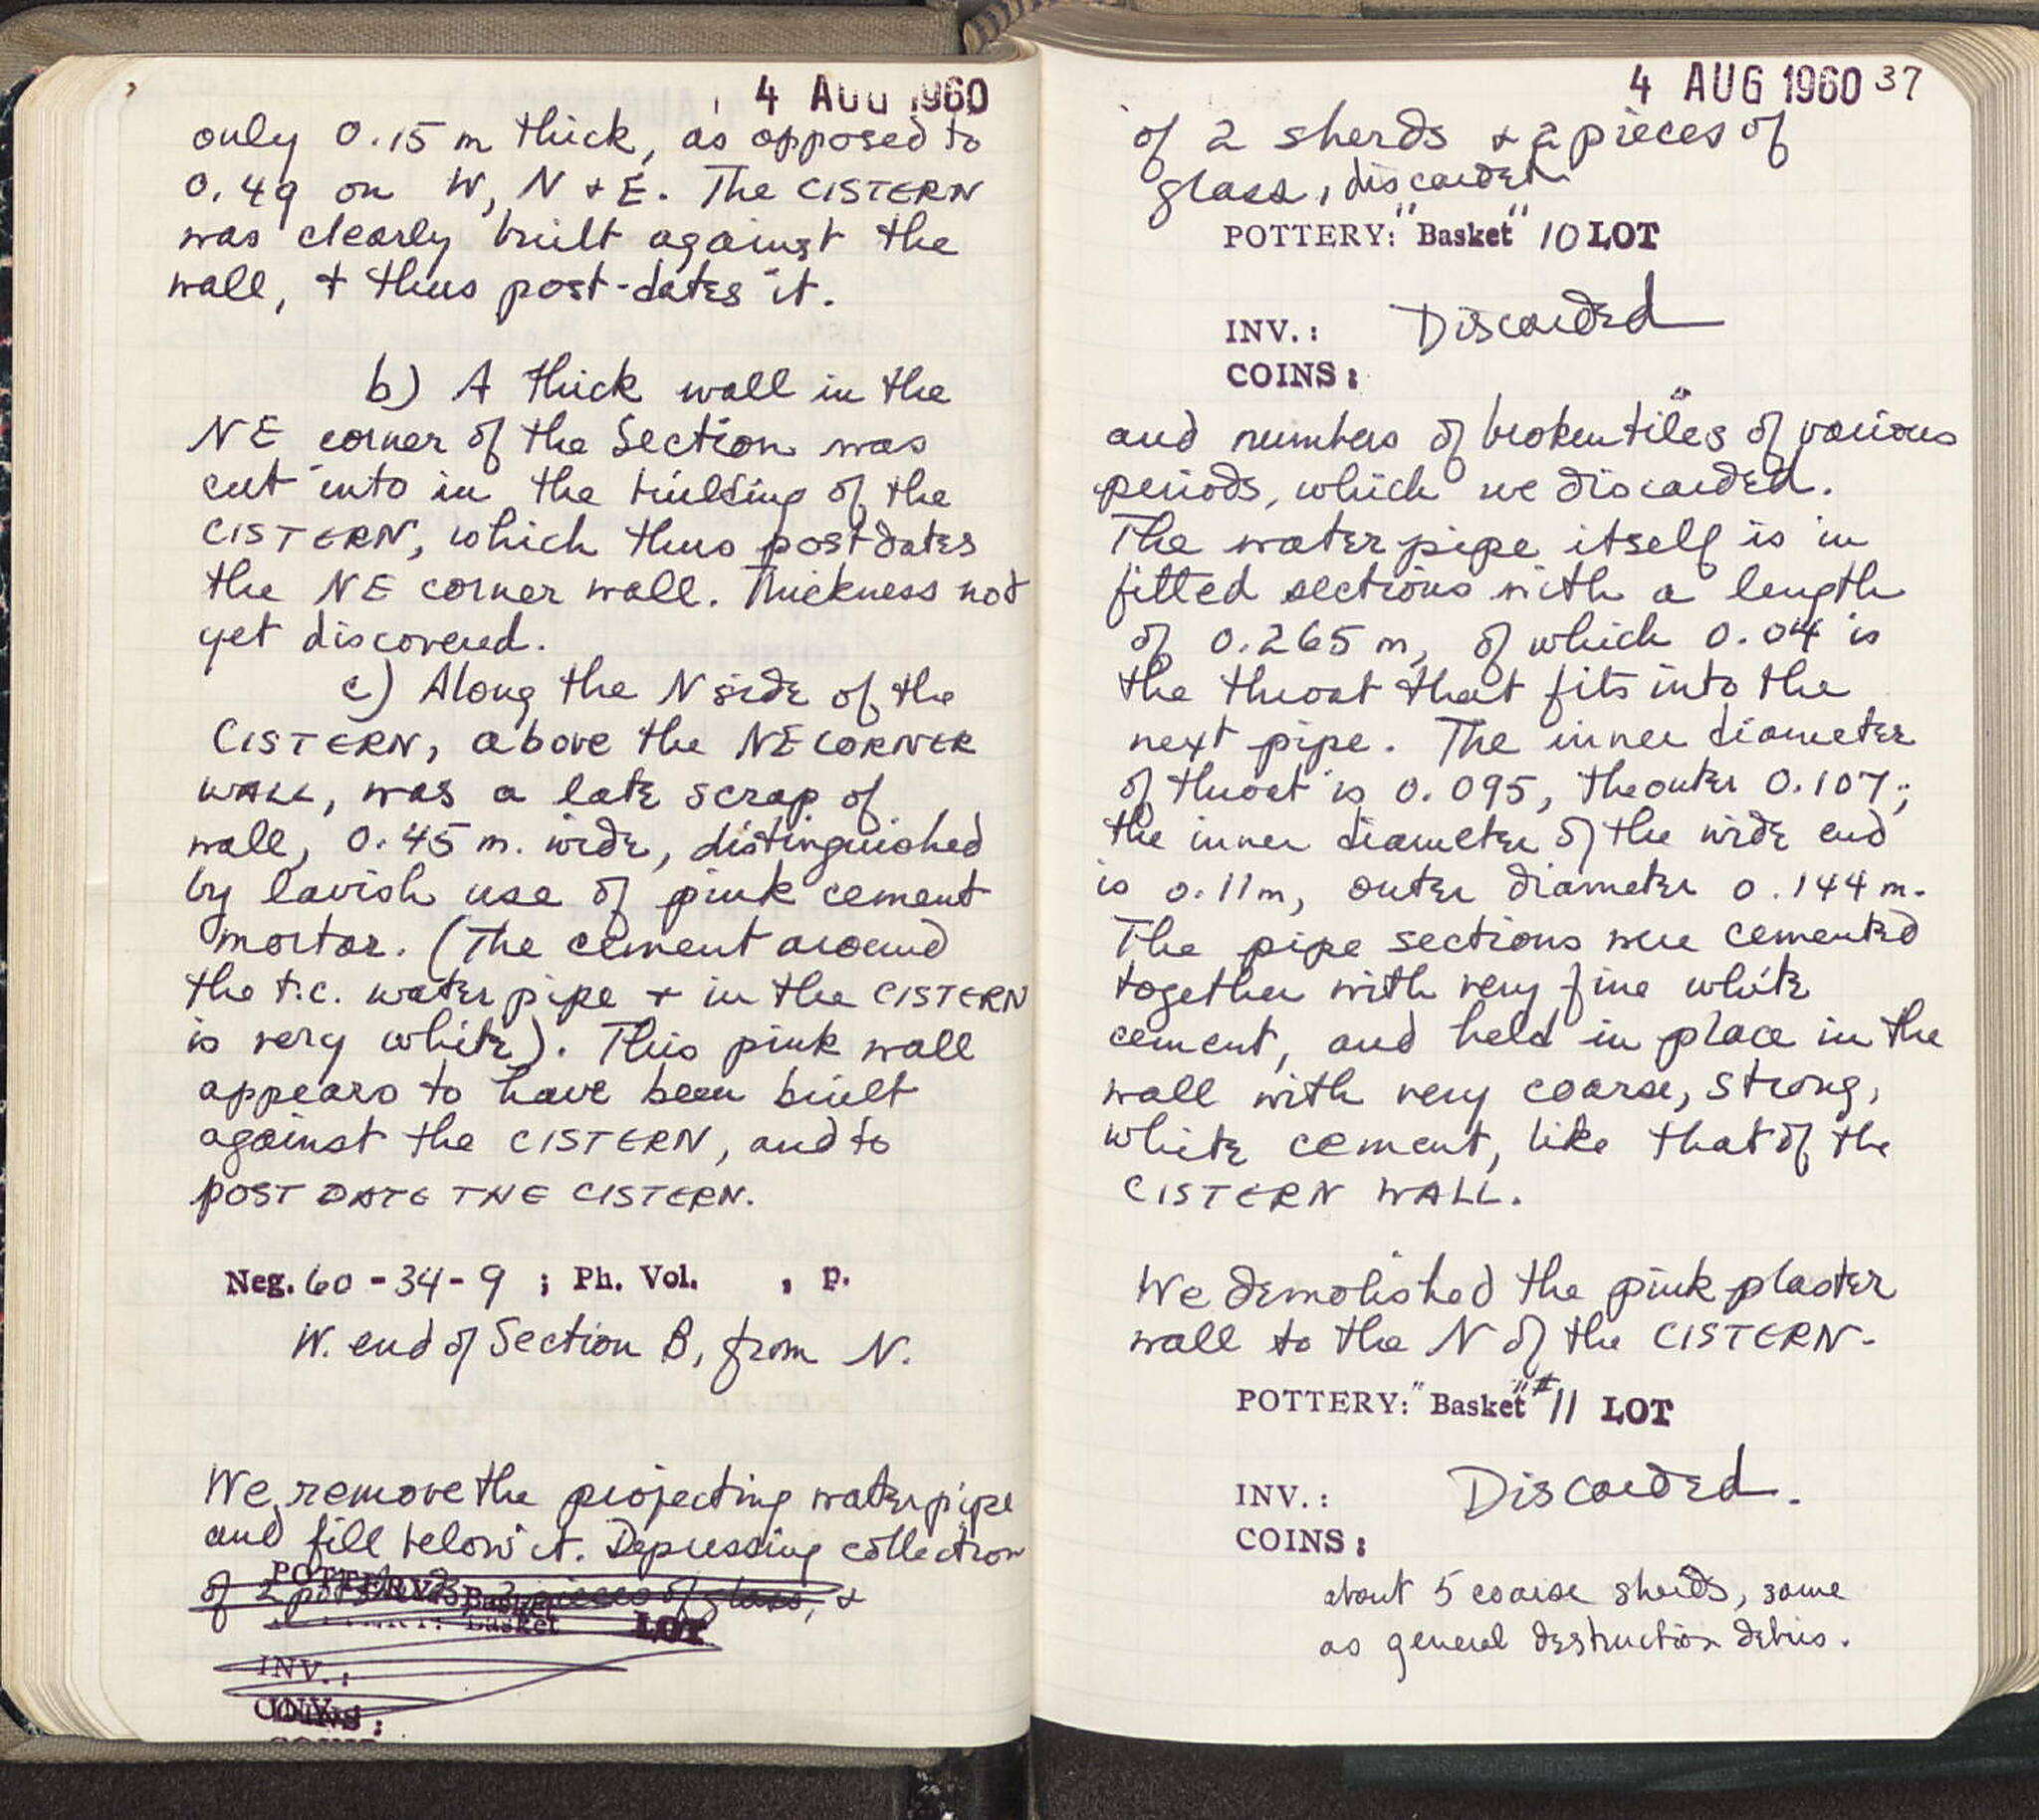 4 AUG 1960
only 0.15 m thick, as opposed to
0.49 on W, N + E. The CISTERN
was clearly built against the
wall, + thus post-dates it.
b) A thick wall in the
NE corner of the Section was
cut into in the building of the
CISTERN, which thus postdates
the NE corner wall. Thickness not
yet discovered.
c) Along the N side of the
CISTERN, above the NE CORNER
WALL, was a late scrap of
wall, 0.45 m. wide, distinguished
by lavish use of pink cement
mortar. (The cement around
the t.c. water pipe + in the CISTERN
is very white). This pink wall
appears to have been built
against the CISTERN, and to
POST DATE THE CISTERN.
Neg. 60-34-9 ; Ph. Vol. , p.
W. end of Section B, from N.
We remove the projecting water pipe
and fill below it. Depressing collection
of 2 pieces of glass, +
POTTERY: Basket LOT
INV.:
COINS:
4 AUG 1960 37
of 2 sherds + 2 pieces of
glass, discarded
POTTERY: "Basket" 10 LOT
INV.: Discarded
COINS:
and numbers of broken tiles of various
periods, which we discarded.
The water pipe itself is in
fitted sections with a length
of 0.265 m, of which 0.04 is
the throat that fits into the
next pipe. The inner diameter
of throat is 0.095, the outer 0.107;
the inner diameter of the wide end
is 0.11m, outer diameter 0.144 m.
The pipe sections were cemented
together with very fine white
cement, and held in place in the
wall with very coarse, strong,
white cement, like that of the
CISTERN WALL.
We demolished the pink plaster
wall to the N of the CISTERN.
POTTERY: "Basket" #11 LOT
INV.: Discarded.
COINS:
about 5 coarse sherds, some
as general destruction debris.